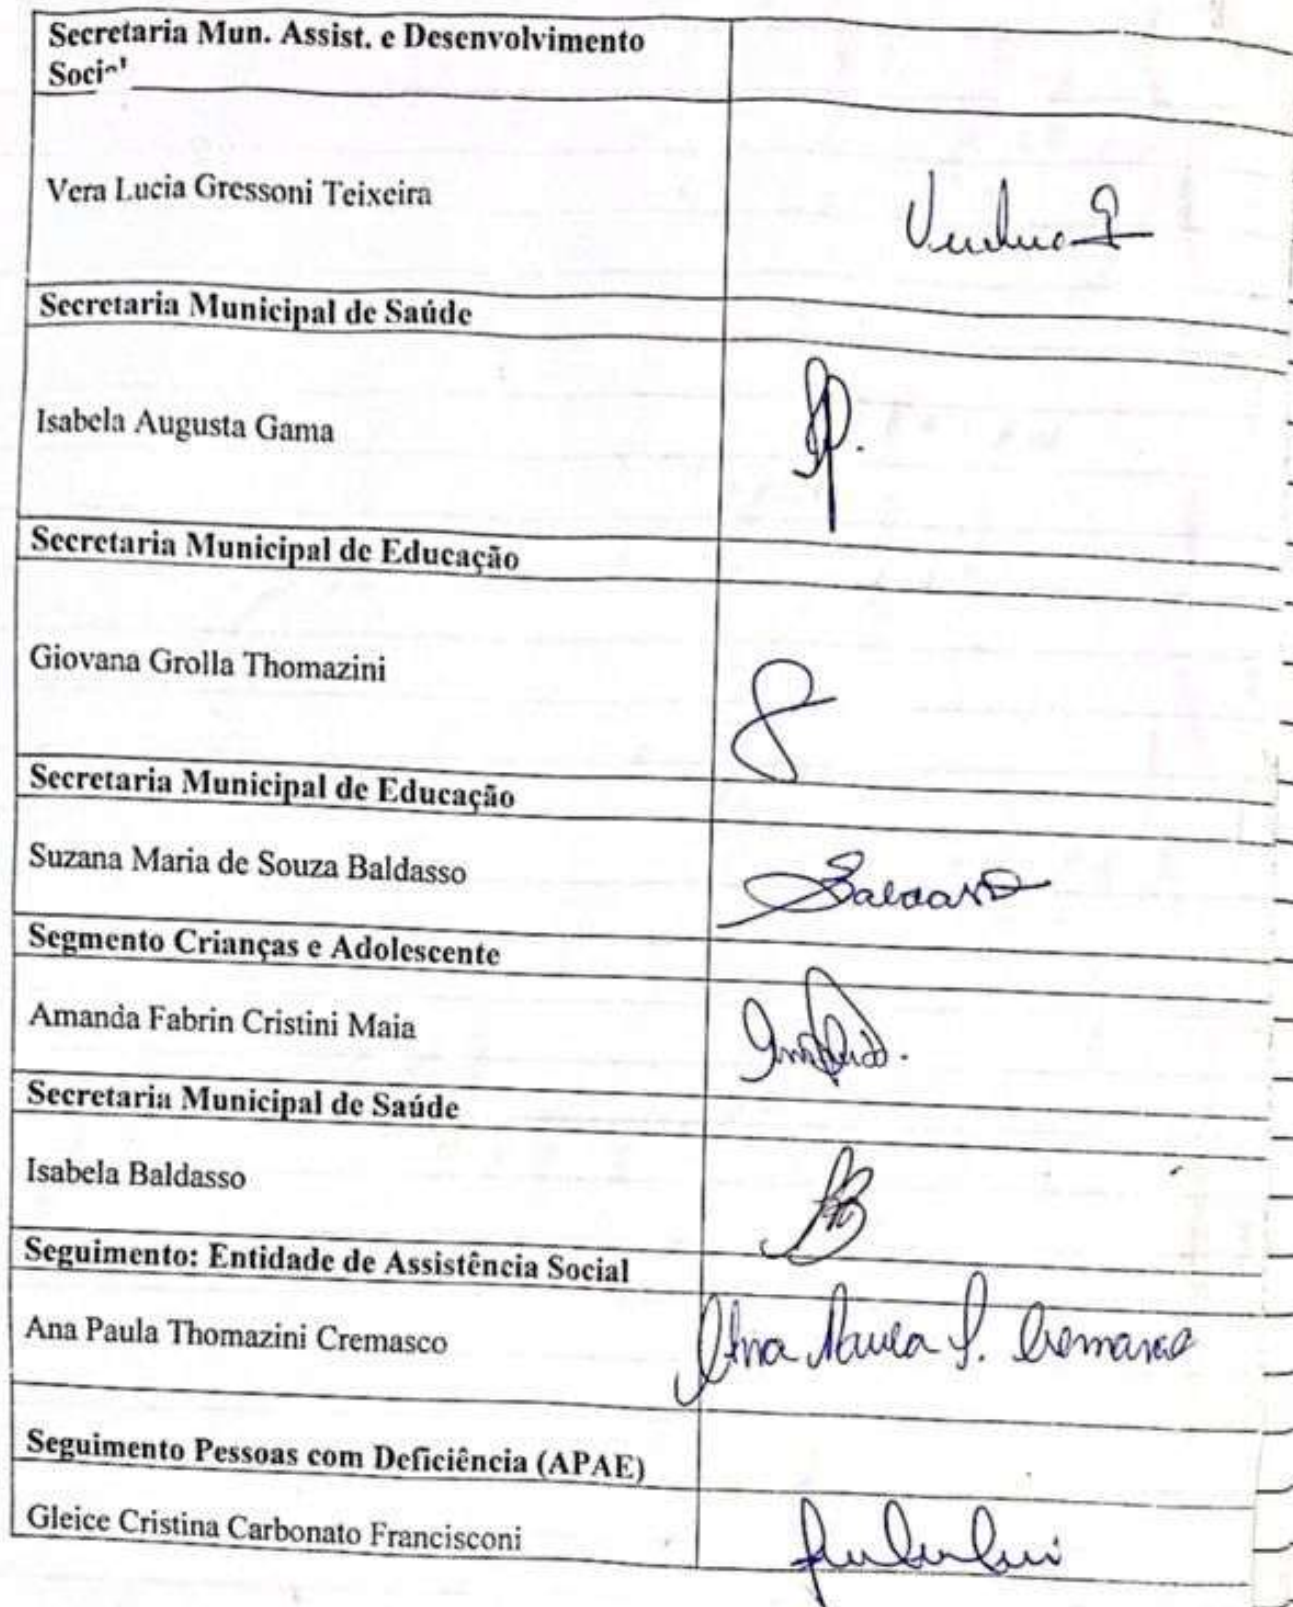 Secretaria Mun. Assist. e Desenvolvimento
Social
Vera Lucia Gressoni Teixeira
Secretaria Municipal de Saúde
Isabela Augusta Gama
Secretaria Municipal de Educação
Giovana Grolla Thomazini
Secretaria Municipal de Educação
Suzana Maria de Souza Baldasso
Baldasso
Segmento Crianças e Adolescente
Amanda Fabrin Cristini Maia
Secretaria Municipal de Saúde
Isabela Baldasso
Seguimento: Entidade de Assistência Social
Ana Paula Thomazini Cremasco
Ana Paula T. Cremasco
Seguimento Pessoas com Deficiência (APAE)
Gleice Cristina Carbonato Francisconi